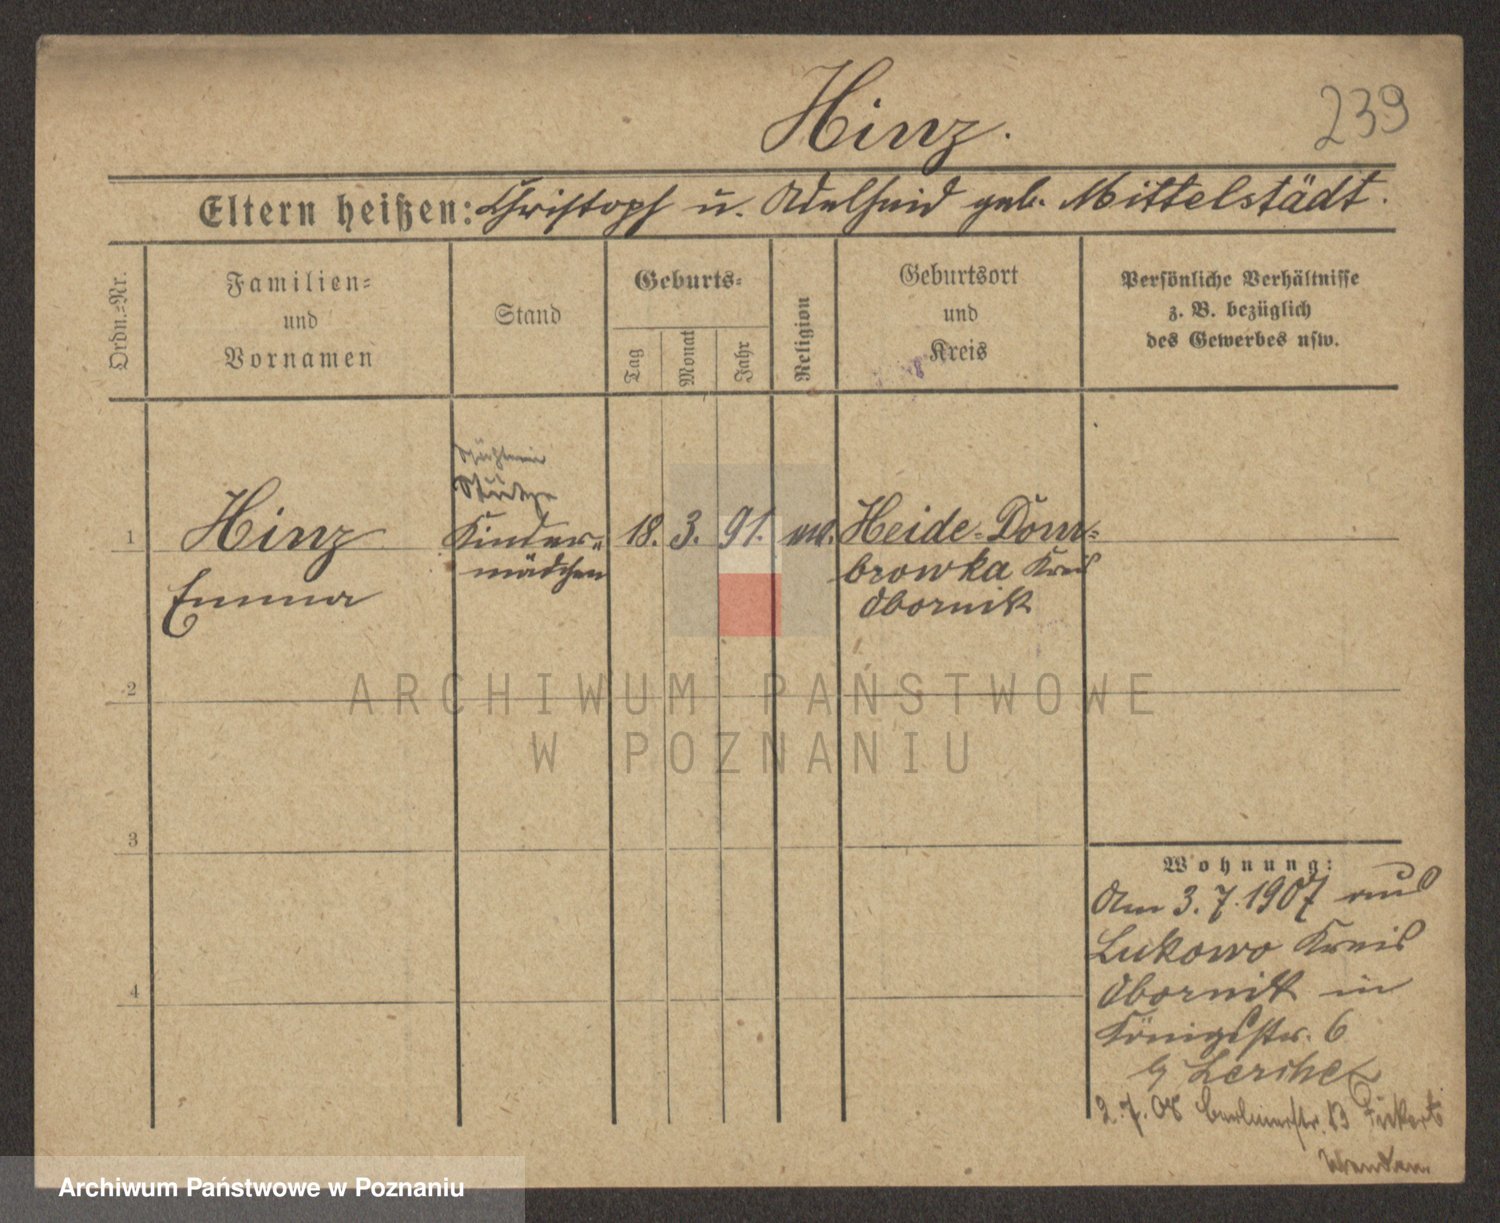 Hinz.
239
Eltern heißen: Christoph u. Adelheid geb. Mittelstädt.
Ordn.-Nr.
Familien-
und
Vornamen
Stand
Geburts-
Tag
Monat
Jahr
Religion
Geburtsort
und
Kreis
Persönliche Verhältnisse
z. B. bezüglich
des Gewerbes usw.
Stütze
1 Hinz Kinder- 18. 3. 91. ev. Heide-Dom-
mädchen browka Kreis
Emma Obornik
2
ARCHIWUM PAŃSTWOWE
W POZNANIU
3
Wohnung:
Am 3.7.1907 aus
Lukowo Kreis
Obornik in
4
Königsstr. 6
b/ Lerche
2.7.08 Berlinerstr. 13
Archiwum Państwowe w Poznaniu